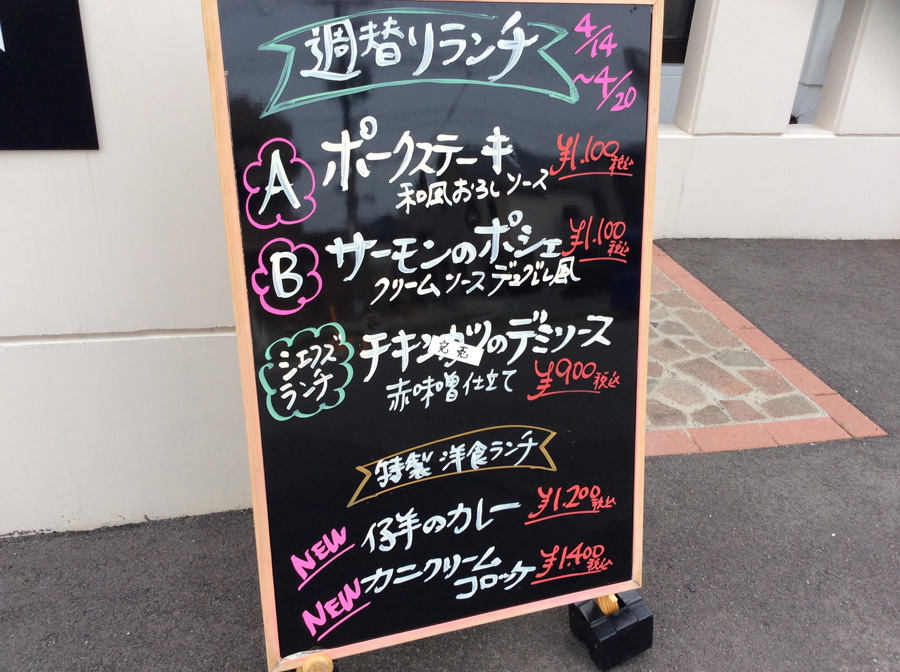 週替りランチ
4/14
~4/20
A
ポークステーキ
¥1.100税込
和風おろしソース
B
サーモンのポシェ
¥1.100税込
クリームソース デュグレレ風
シェフズ
ランチ
チキンカツのデミソース
完売
赤味噌仕立て
¥900税込
特製 洋食ランチ
NEW
仔羊のカレー
¥1.200税込
NEW
カニクリーム
コロッケ
¥1.400税込